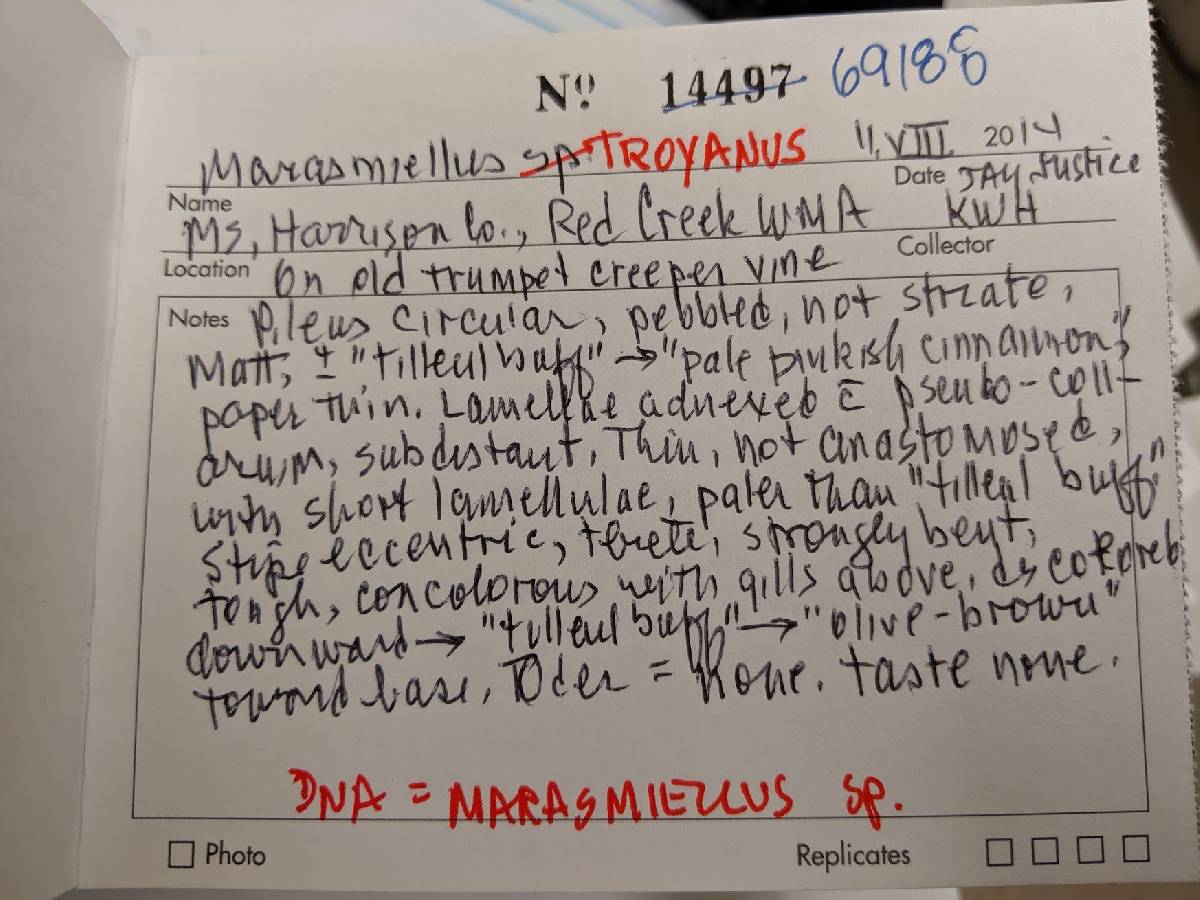 Nº 14497 69188
Marasmiellus sp. TROYANUS 11, VIII. 2014
Name Date JAY Justice
MS, Harrison Co., Red Creek WMA KWH
Location On old trumpet creeper vine Collector
Notes Pileus circular, pebbled, not striate,
Matt, ± "tilleul buff" → "pale pinkish cinnamon",
paper thin. Lamellae adnexed c̄ pseudo-coll-
arium, subdistant, Thin, not anastomosed,
with short lamellulae, paler than "tilleul buff"
Stipe eccentric, terete, strongly bent,
tough, concolorous with gills above, discolored
downward → "tilleul buff" → "olive-brown"
toward base, Oder = None. taste none.
DNA = MARASMIELLUS sp.
Photo Replicates